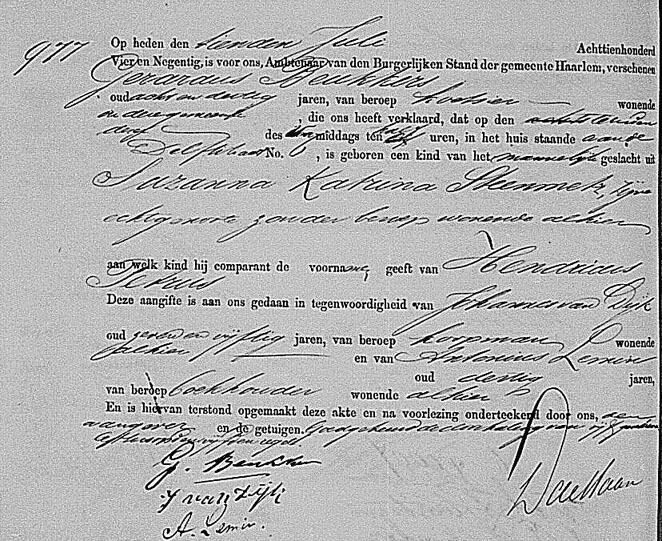 977 Op heden den tienden Juli Achttienhonderd
Vier en Negentig, is voor ons, Ambtenaar van den Burgerlijken Stand der gemeente Haarlem, verschenen
Gerardus Beukkers
oud acht en dertig jaren, van beroep wonende
in deze gemeente, die ons heeft verklaard, dat op den
dezer des middags ten uren, in het huis staande aan de
Delftstraat No. 6, is geboren een kind van het mannelijk geslacht uit
Suzanna Katrina Steenmetz, zijne
echtgenoote, zonder beroep wonende alhier
aan welk kind hij comparant de voorname, geeft van Hendricus
Petrus
Deze aangifte is aan ons gedaan in tegenwoordigheid van Johannes van Dijk
oud zeven en vijftig jaren, van beroep koopman wonende
alhier, en van Antonius Lemir
oud dertig jaren,
van beroep boekhouder wonende alhier
En is hiervan terstond opgemaakt deze akte en na voorlezing onderteekend door ons, den
aangever en de getuigen. Goedgekeurd de doorhaling van vijf gedrukte
G. Beukkers
J van Dijk
A. Lemir.